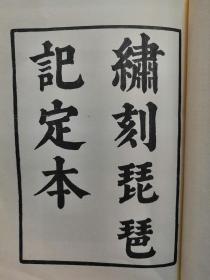 繡刻琵琶
記定本